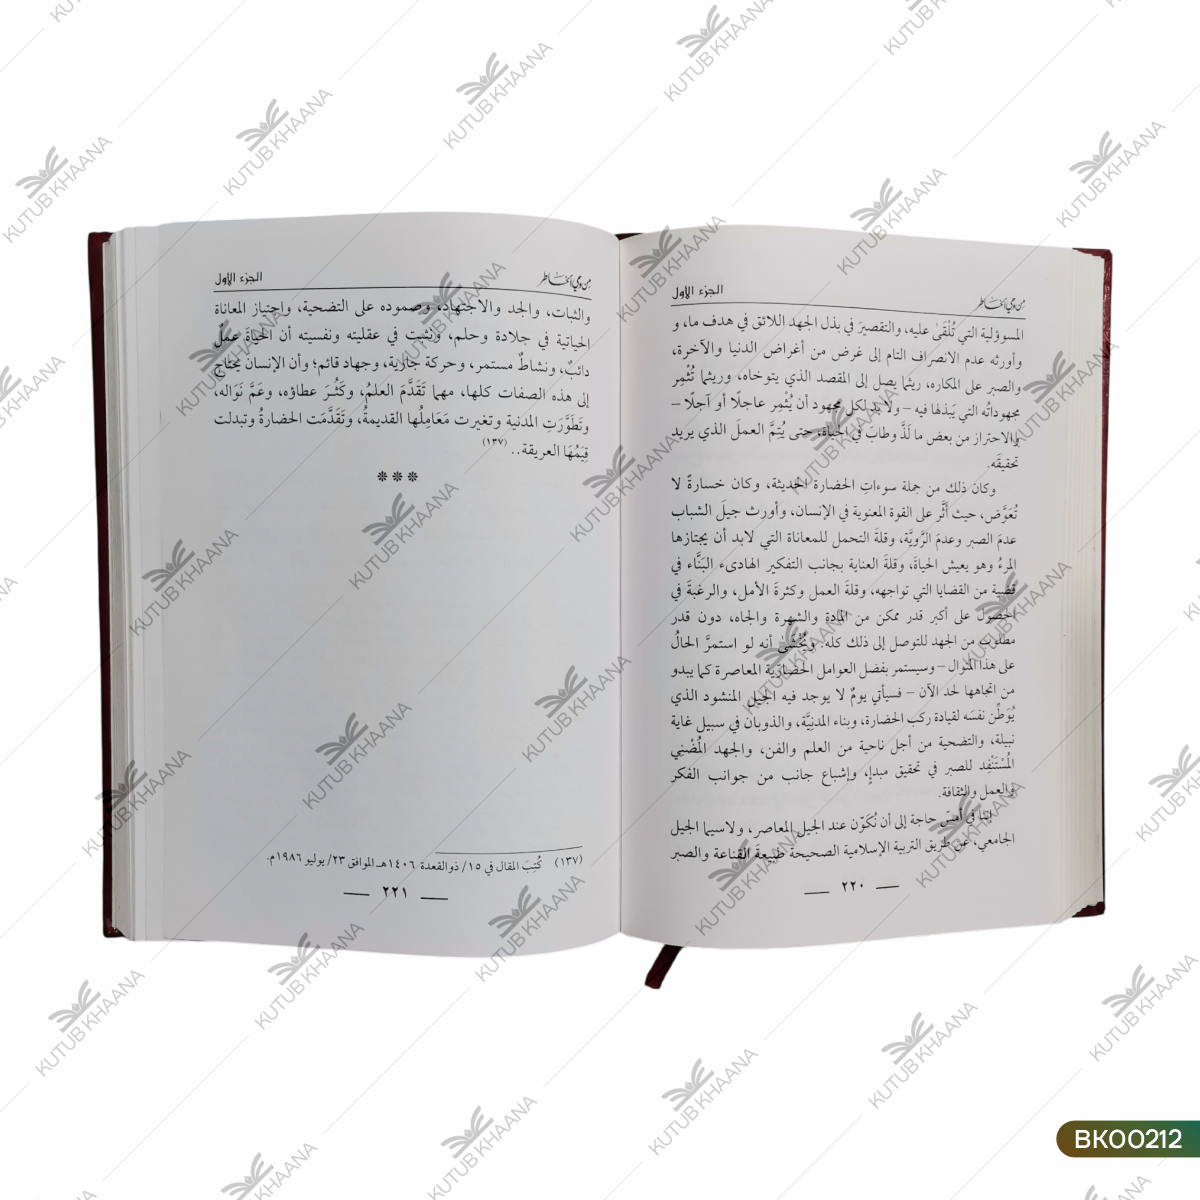 من وحي الخاطر الجزء الأول
المسؤولية التي تُلْقَىٰ عليه، والتقصيرَ في بذل الجهد اللائق في هدف ما، و
وأورثه عدم الانصراف التام إلى غرض من أغراض الدنيا والآخرة،
والصبر على المكاره، ريثما يصل إلى المقصد الذي يتوخاه، وريثما تُثْمِر
مجهوداتُه التي يَبذلها فيه – ولا بد لكل مجهود أن يُثْمِر عاجلًا أو آجلًا –
والاحتراز من بعض ما لَذَّ وطابَ في الحياة، حتى يُتِمَّ العملَ الذي يريد
تحقيقَه.
وكان ذلك من جملة سوءاتِ الحضارة الحديثة، وكان خسارةً لا
تُعَوَّض، حيث أَثَّر على القوة المعنوية في الإنسان، وأورث جيلَ الشباب
عدمَ الصبر وعدمَ الرَّوِيَّة، وقلةَ التحمل للمعاناة التي لابد أن يجتازها
المرءُ وهو يعيش الحياةَ، وقلةَ العناية بجانب التفكير الهادىء البَنَّاء في
قضية من القضايا التي تواجهه، وقلةَ العمل وكثرةَ الأمل، والرغبةَ في
الحصول على أكبر قدر ممكن من المادة والشهرة والجاه، دون قدر
مطلوب من الجهد للتوصل إلى ذلك كله. ويُخْشَىٰ أنه لو استمرَّ الحالُ
على هذا المنوال – وسيستمر بفضل العوامل الحضارية المعاصرة كما يبدو
من اتجاهها لحد الآن – فسيأتي يومٌ لا يوجد فيه الجيل المنشود الذي
يُوَطِّن نفسَه لقيادة ركب الحضارة، وبناء المدنِيَّة، والذوبان في سبيل غاية
نبيلة، والتضحية من أجل ناحية من العلم والفن، والجهد المُضْنِي
المُسْتَنْفِد للصبر في تحقيق مبدإ، وإشباع جانب من جوانب الفكر
والعمل والثقافة.
إننا في أَمسّ حاجة إلى أن نُكَوّن عند الجيل المعاصر، ولاسيما الجيل
الجامعي، عن طريق التربية الإسلامية الصحيحة طبيعةَ القناعة والصبر
— ٢٢٠ —
من وحي الخاطر الجزء الأول
والثبات، والجد والاجتهاد، وصموده على التضحية، واجتياز المعاناة
الحياتية في جلادة وحلم، ونثبت في عقليته ونفسيته أن الحياةَ عملٌ
دائبٌ، ونشاطٌ مستمر، وحركة جارية، وجهاد قائم؛ وأن الإنسان يحتاج
إلى هذه الصفات كلها، مهما تَقَدَّمَ العلمُ، وكَثُرَ عطاؤه، وعَمَّ نَوَاله،
وتَطَوَّرَتِ المدنية وتغيرت مَعَامِلُها القديمةُ، وتَقَدَّمَت الحضارةُ وتبدلت
قِيَمُها العريقة.. (١٣٧)
***
(١٣٧) كُتِبَ المقال في ١٥/ ذوالقعدة ١٤٠٦هـ الموافق ٢٣/ يوليو ١٩٨٦م.
— ٢٢١ —
KUTUB KHAANA
BK00212